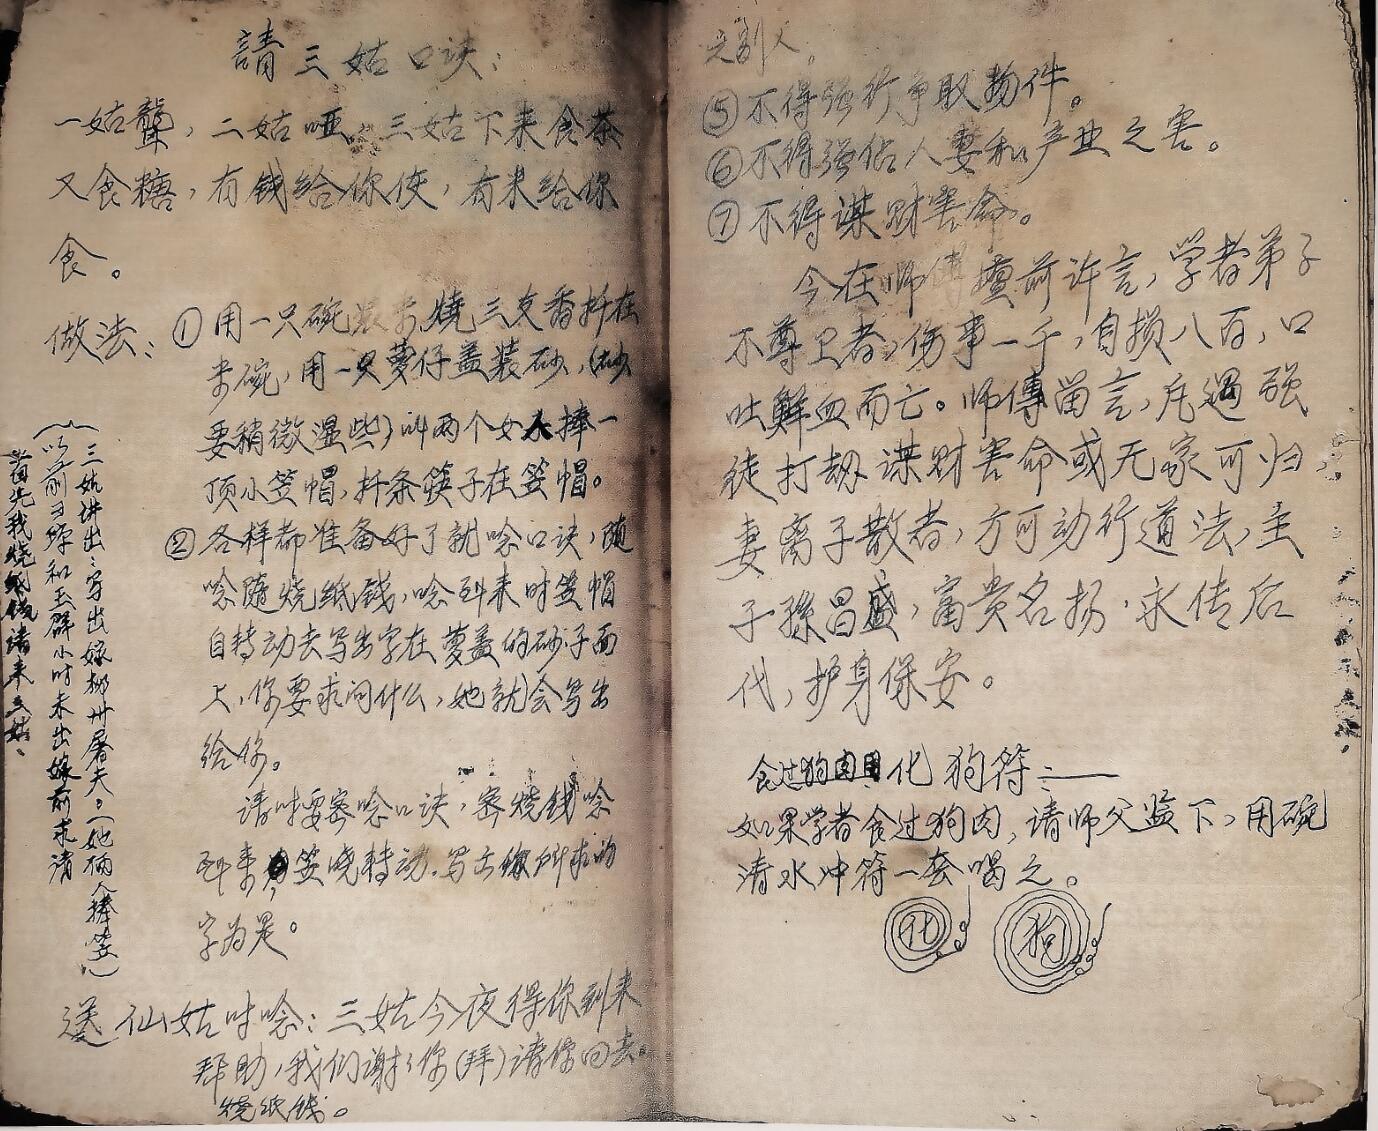 請三姑口诀：
一姑聾，二姑哑。三姑下来食茶
又食糖，有钱给你使，有米给你
食。
做法：①用一只碗装米，燒三支香扦在
米碗，用一只萝仔盖装砂，（砂
要稍微湿些）叫两个女人捧一
顶小笠帽，扦条筷子在笠帽。
②各样都准备好了就唸口诀，随
唸随烧纸钱，唸到来时笠帽
自转动去写出字在萝盖的砂子面
上，你要求问什么，她就会写出
给你。
请时要密唸口诀，密烧钱唸
到来，笠晓转动，写出你所求的
字为是。
（三姑讲出：写出嫁柳州屠夫。（她俩人捧笠）
以前和玉群小时未出嫁前求请
首先我烧纸钱请来三姑、
送仙姑时唸：三姑今夜得你到来
帮助，我们谢谢你（拜）请你回去。
烧纸钱。
别人。
⑤不得强行争取物件。
⑥不得强佔人妻和产业之害。
⑦不得谋财害命。
今在师傅擅前许言，学者弟子
不尊卫者，伤事一千，自损八百，口
吐鲜血而亡。师傅留言，凡遇强
徒打劫谋财害命或无家可归
妻离子散者，方可动行道法，主
子孫昌盛，富贵名扬，永传后
代，护身保安。
食过狗肉用化狗符：
如果学者食过狗肉，请师父监下，用碗
清水冲符一套喝之。
化 狗